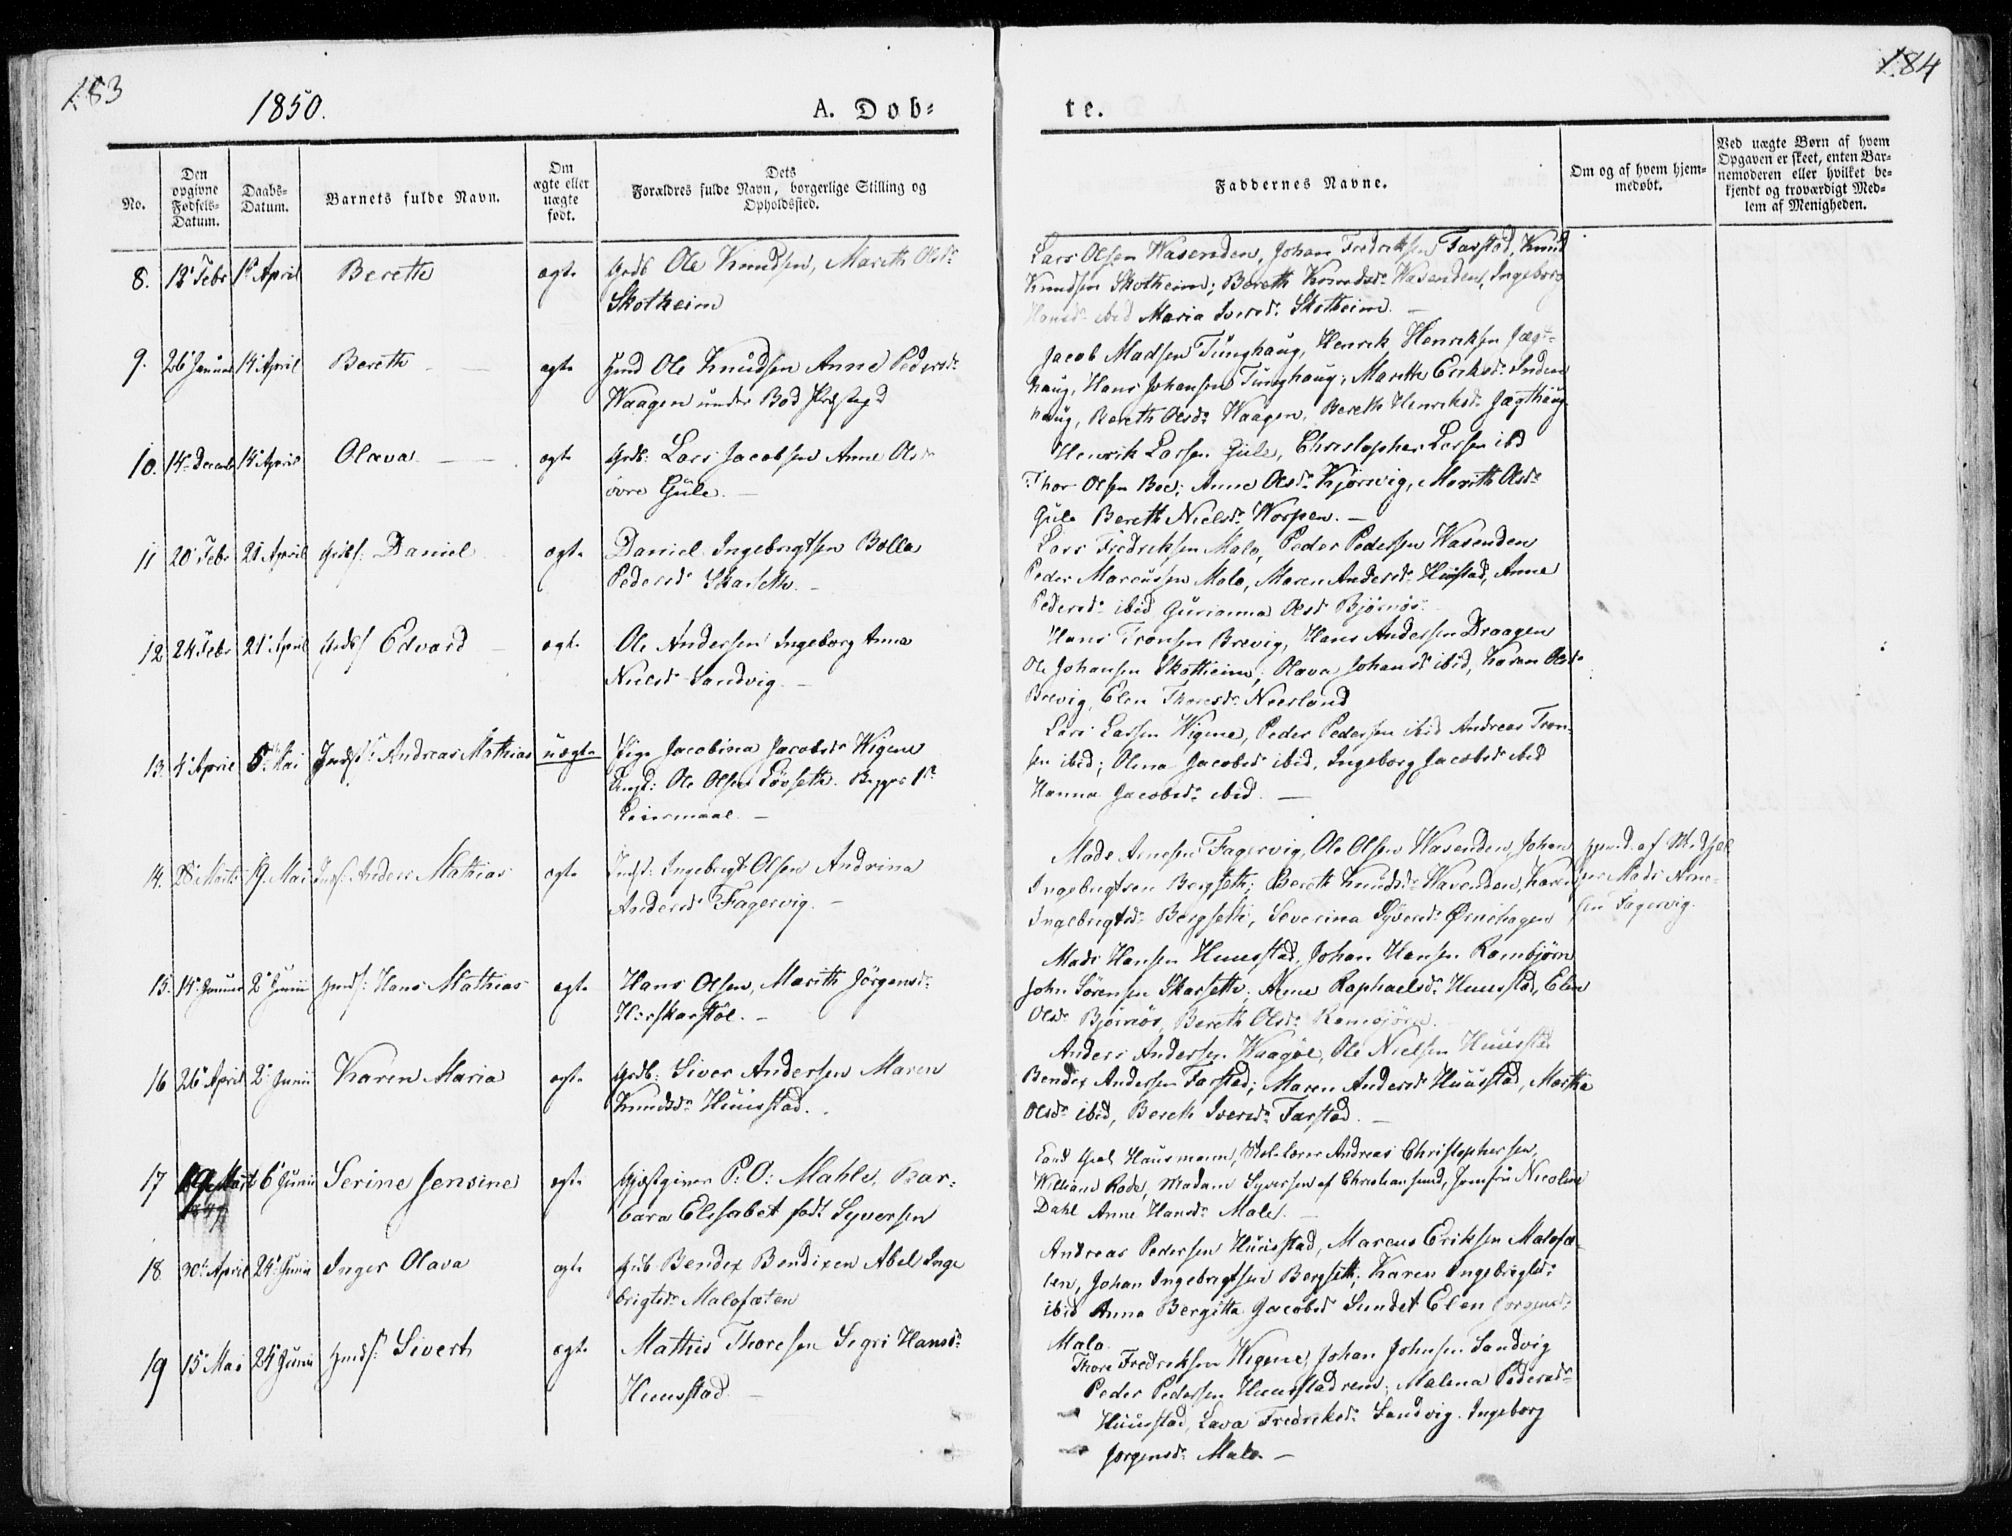 183
184
1850.
A. Døb-
te.
No.
Den opgivne Fødsels-Datum.
Daabs-Datum.
Barnets fulde Navn.
Om ægte eller uægte født.
Dets Forældres fulde Navn, borgerlige Stilling og Opholdssted.
Faddernes Navne.
Om og af hvem hjem-
medøbt.
Ved uægte Børn af hvem
Opgaven er skeet, enten Bar-
nemoderen eller hvilket be-
kjendt og troværdigt Med-
lem af Menigheden.
8. 13 Febr 1 April Berethe ægte Grdb Ole Knudsen, Marith Olsdr
Skotheim
Lars Olsen Wasenden, Johan Fredriksen Farstad, Knud
Knudsen Skotheim; Bereth Knudsdr Wasenden, Ingeborg
Hansdr ibid Maria Iversdr Skotheim. —
9. 26 Januar 14 April Bereth ægte Hmd Ole Knudsen Anne Pedersdr
Waagen under Bod Præstegd
Jacob Madsen Tunghaug, Henrik Henriksen Jægt-
haug, Hans Johansen Tunghaug; Marith Eriksdr
haug, Bereth Olsdr Waagen, Bereth Henriksdr Jægthaug
10. 14 Decemb 14 April Olava ægte Grdb: Lars Jacobsen Anne Olsdr
øvre Gule. —
Henrik Larsen Gule, Christopher Larsen ibd
Thor Olsen Boe; Anne Olsdr Kjørsvig, Marith Olsdr
Gule Bereth Nielsdr Worpen. —
11 20 Febr 21 April Daniel ægte Daniel Ingebrigtsen Bolla
Pedersdr Skarseth. —
Lars Fredriksen Malo, Peder Pedersen Wasenden
Peder Marcussen Malo, Maren Andersdr Huustad, Anne
Pedersdr ibid Gurianna Olsd Bjørnøs.
12 24 Febr 21 April Edvard ægte Ole Andersen Ingeborg Anna
Nielsdr Sandvig. —
Hans Tronsen Brevig, Hans Andersen Draagen
Ole Johansen Skotheim; Olava Johansdr ibid, Karen Olsdr
Brevig, Elen Thoresdr Neerland
13. 4 April 5 Mai Andreas Mathias uægte Pige Jacobina Jacobsdr Wigene
Ungk: Ole Olsen Løvseth. Begges 1ste
Leiermaal. —
Lars Larsen Wigene, Peder Pedersen ibid Andreas Tron-
sen ibid; Olena Jacobsdr ibid, Ingeborg Jacobsdr ibid
Hanna Jacobsdr ibid. —
14. 28 Marts 19 Mai Anders Mathias ægte Ingebrigt Olsen Andrina
Andersdr Fagervig. —
Mads Arnesen Fagervig, Ole Olsen Wasenden, Johan
Ingebrigtsen Bergseth; Bereth Knudsdr Wasenden, Karen
Ingebrigtsdr Bergseth, Severina Syversdr Ørnehagen
hjemd. af Medhjæl-
per Mads Arne-
sen Fagervig.
15. 14 Januar 2 Junii Hans Mathias ægte Hans Olsen, Marith Jørgensdr
Harskarstøl. —
Mads Hansen Huusstad, Johan Hansen Rambjøra
John Sørensen Skarseth; Anne Raphaelsdr Huusstad, Elen
Olsdr Bjørnøs, Bereth Olsdr Rambjøra.
16 26 April 2 Junii Karen Maria ægte Grdb: Siver Andersen Maren
Knudsdr Huusstad.
Anders Andersen Waagøe, Ole Nielsen Huusstad
Bendix Andersen Farstad; Maren Andersdr Huusstad, Marthe
Olsdr ibid, Bereth Iversdr Farstad. —
17 19 Mart 6 Junii Serine Jensine ægte Gjæstgiver P: O: Mahle, Bar-
bara Elisabet født Syversen
Hausmann, Skolelærer Andreas Christophersen,
William Rode, Madam Syversen af Christiansund, Jomfru Nicoline
Dahl Anne Hansdr Male. —
18 30 April 24 Junii Inger Olava ægte Bendix Bendixen Abel Inge
brigtsdr Malosæten
Andreas Pedersen Huusstad, Marcus Eriksen Malosæ-
ten, Johan Ingebrigtsen Bergseth; Karen Ingebrigtsdr
ibid Anna Bergitta Jacobsd Sundet Elen Jørgensdr
Malo.
19 15 Mai 24 Junii Sivert ægte Mathis Thoresen Segri Hansdr
Huusstad. —
Thore Fredriksen Wigene, Johan Johnsen Sandvig
Peder Pedersen Huusstadrem; Malena Pedersdr
Huusstad, Lava Fredriksdr Sandvig. Ingeborg
Jørgensdr Malo —